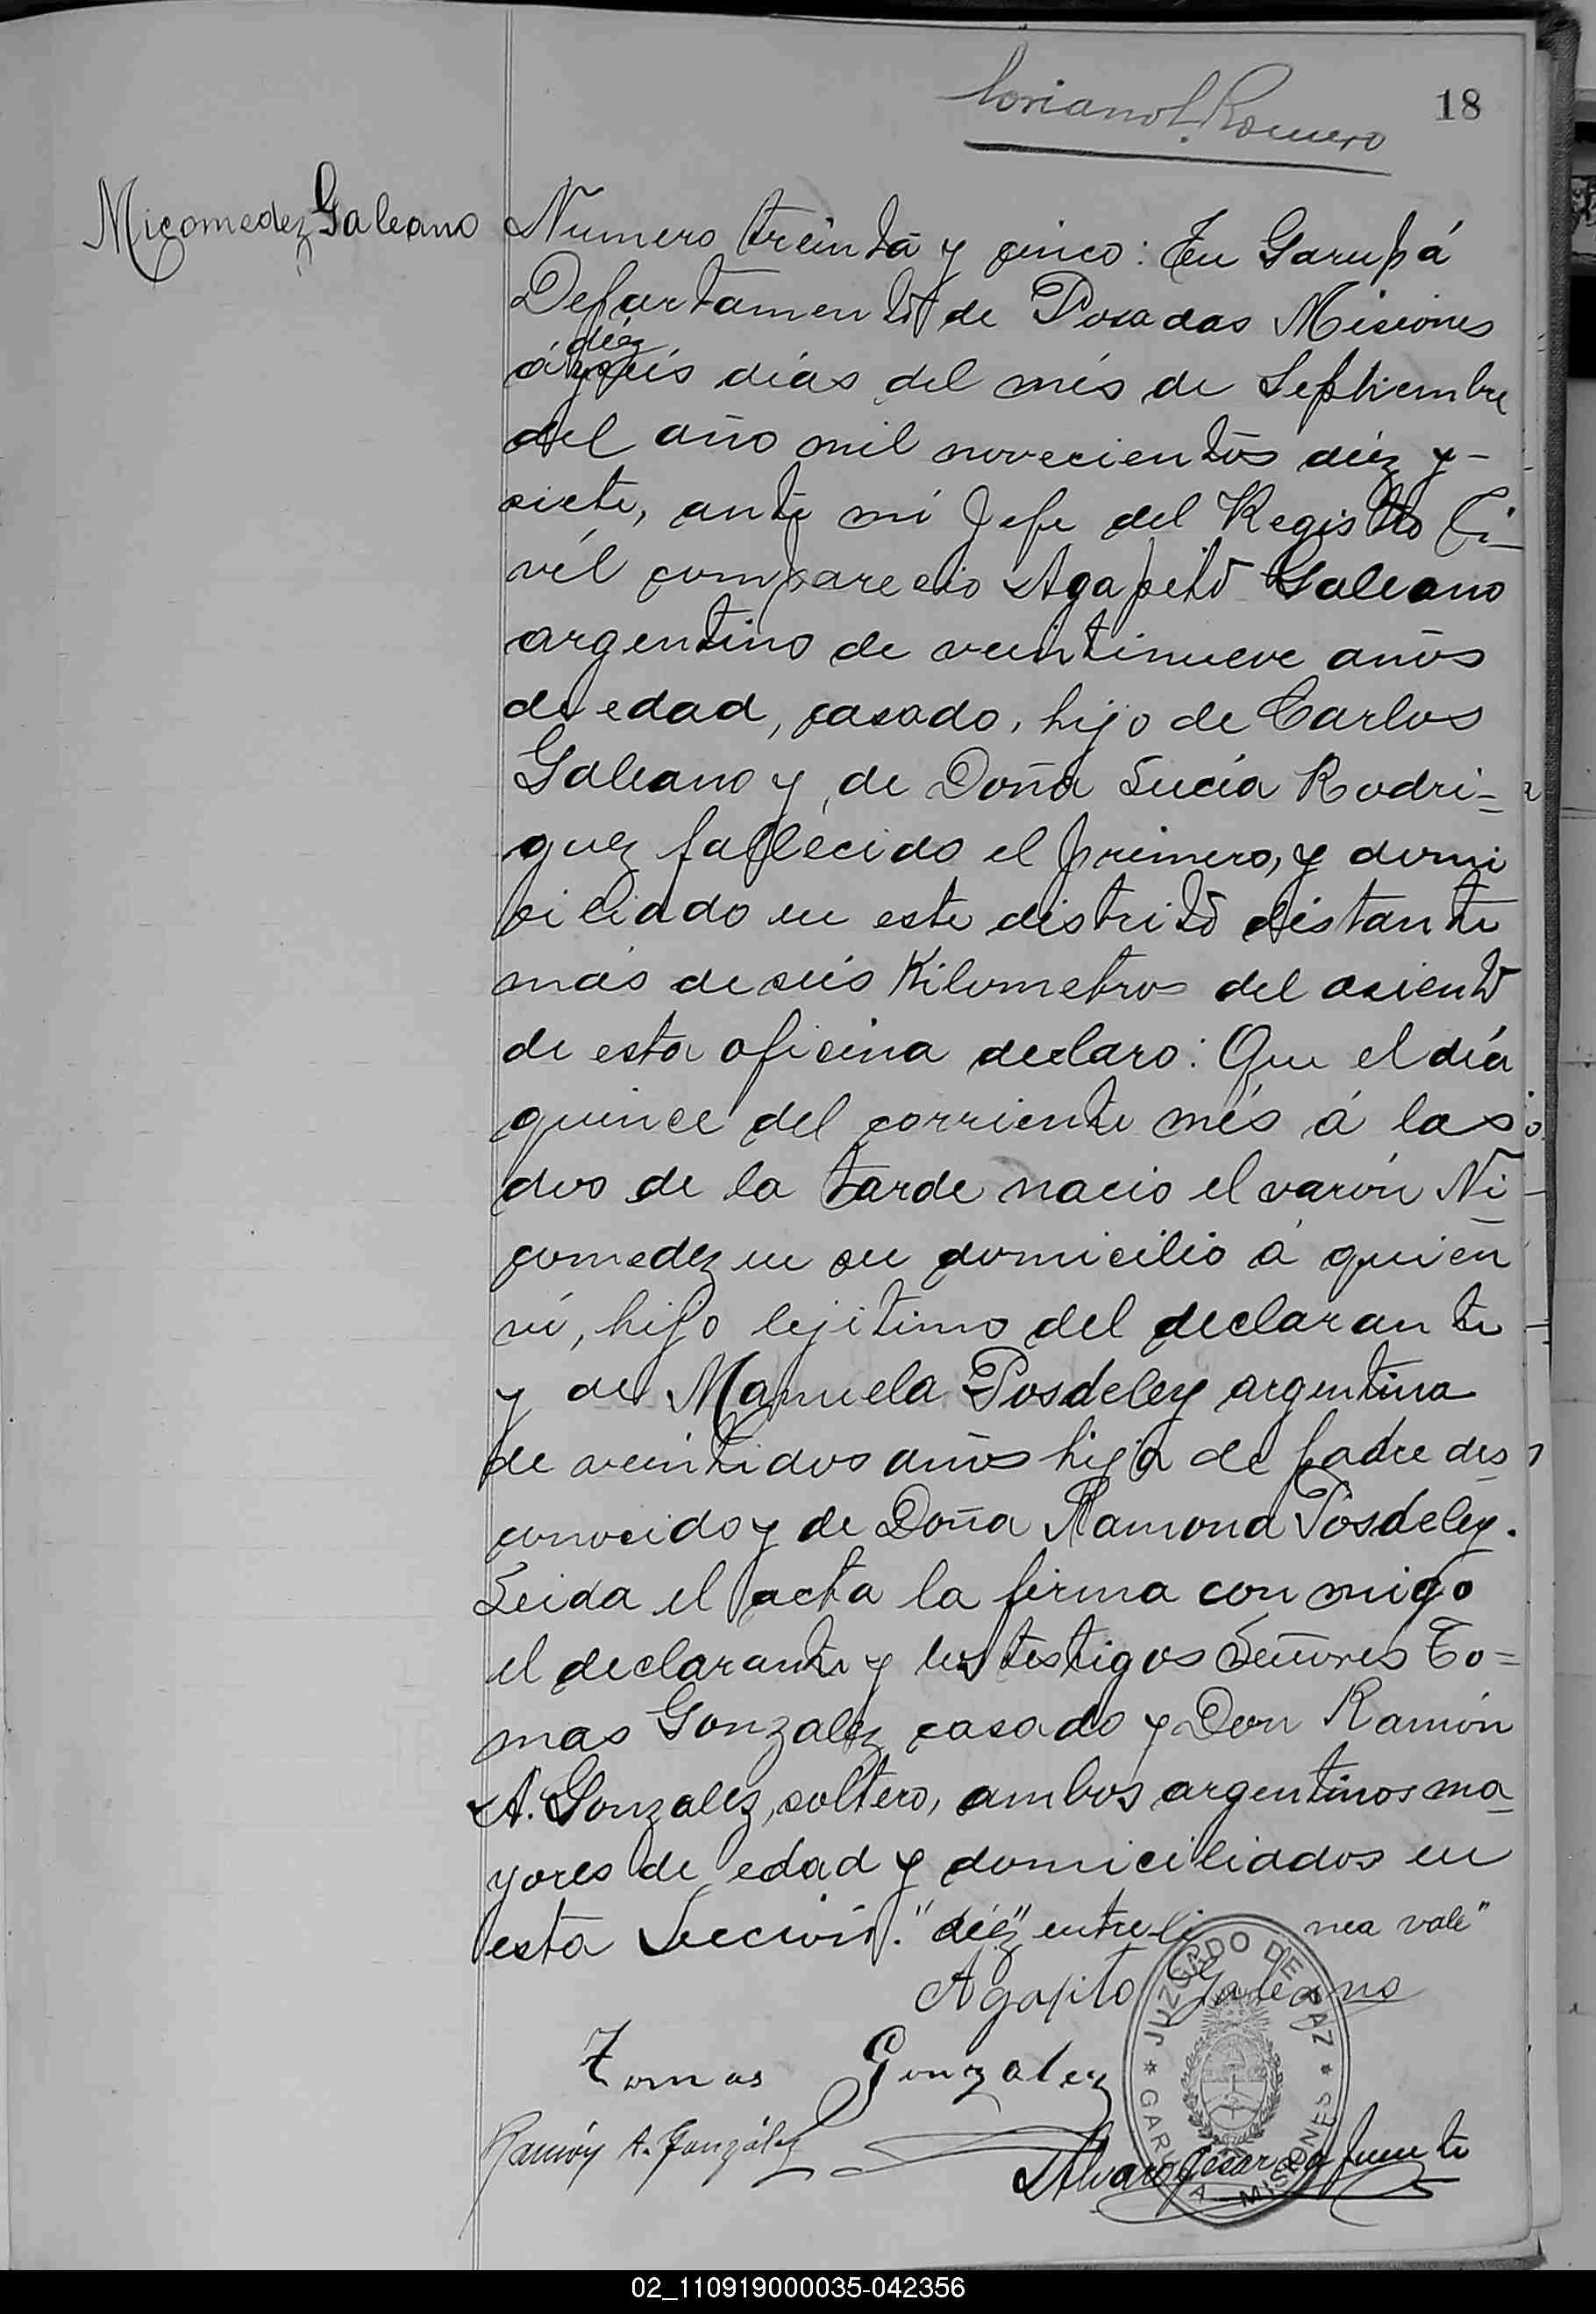 18
Loriano L. Romero
Nicomedez Galeano
Numero treinta y cinco: En Garupá
Departamento de Posadas Misiones
diéz
á y séis dias del més de Septiembre
del año mil novecientos diéz y-
siete, ante mi Jefe del Registro Ci-
vil comparecio Agapito Galeano
argentino de veintinueve años
de edad, casado, hijo de Carlos
Galeano y de Doña Lucía Rodri=
guez fallecido el primero, y domi
ciliado en este distrito distante
más de seis Kilometros del asiento
de esta oficina declaro: Que el día
quince del corriente més á las
dos de la tarde nacio el varón Ni-
comedez en su domicilio á quien
ví, hijo lejitimo del declarante
y de Manuela Posdeley argentina
de veintidos años hija de padre des
conocido y de Doña Ramona Posdeley.
Leida el acta la firma conmigo
el declarante y los testigos Señores To=
mas Gonzalez casado y Don Ramón
A. Gonzalez, soltero, ambos argentinos ma-
yores de edad y domiciliados en
esta Sección. "diéz" entreli nea vale"
Agapito Galeano
JUZGADO DE PAZ * GARUPA MISIONES *
Tomas Gonzalez
Ramón A. González
Alvaro Lafuente
02_110919000035-042356